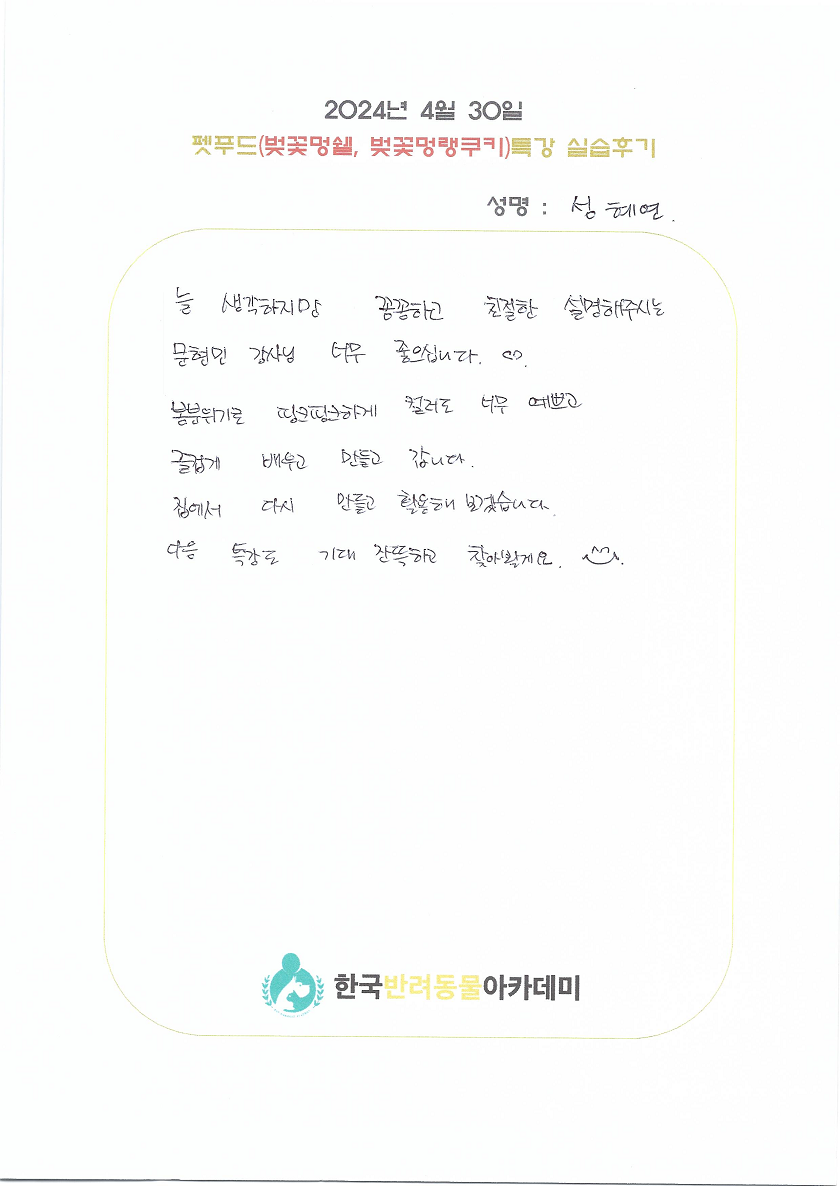 2024년 4월 30일
펫푸드(벚꽃멍쉘, 벚꽃멍랭쿠키)특강 실습후기
성명 : 성혜연.
늘 생각하지만 꼼꼼하고 친절한 설명해주시는
문현민 강사님 너무 좋으십니다.
봄분위기로 핑크핑크하게 컬러도 너무 예쁘고
즐겁게 배우고 만들고 갑니다.
집에서 다시 만들고 활용해 보겠습니다.
다음 특강도 기대 잔뜩하고 찾아뵐게요.
한국반려동물아카데미